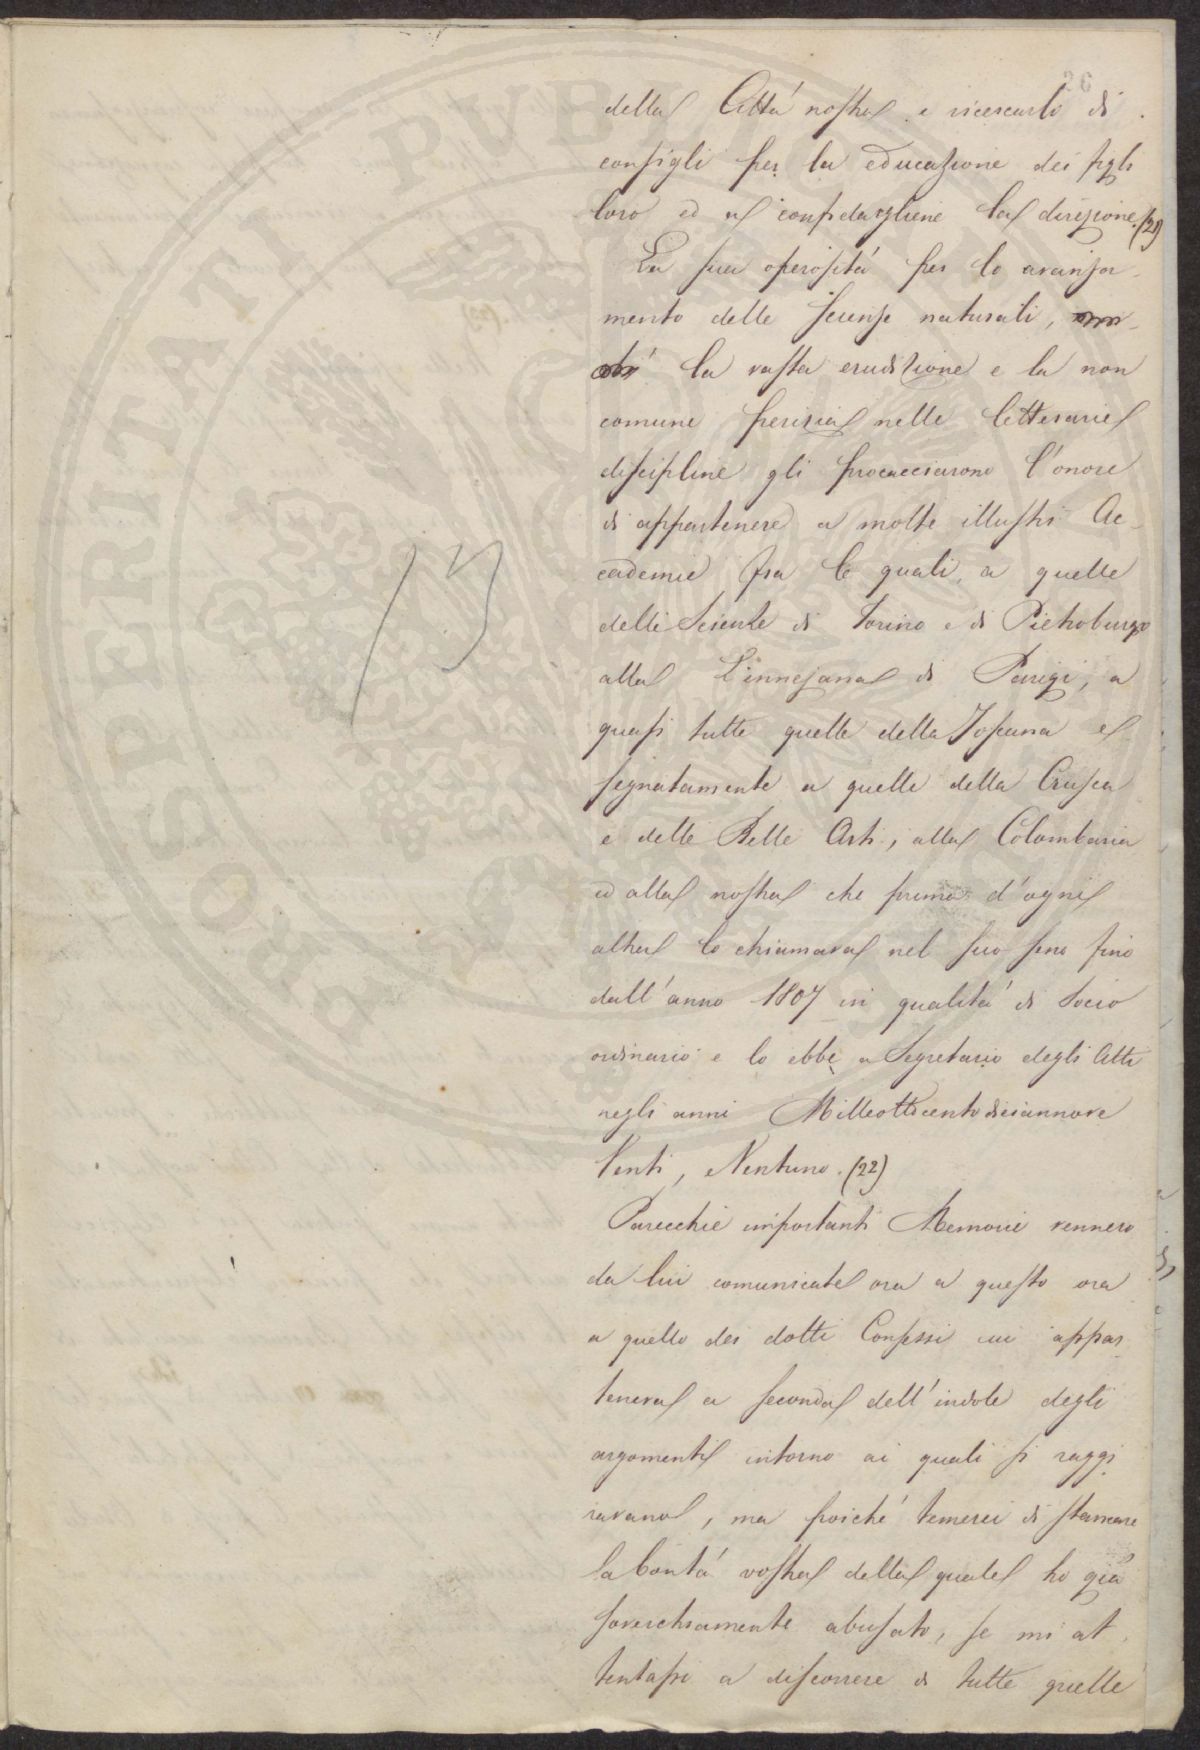 della Città nostra e ricercarlo di
consigli per la educazione dei figli
loro ed a confidargliene la direzione. (21)
La sua operosità per lo avanza-
mento delle Scienze naturali,
la vasta erudizione e la non
comune perizia nelle letterarie
discipline gli procacciarono l'onore
di appartenere a molte illustri Ac-
cademie fra le quali, a quelle
delle Scienze di Torino e di Pietroburgo
alla Linnejana di Parigi, a
quasi tutte quelle della Toscana e
segnatamente a quelle della Crusca
e delle Belle Arti, alla Colombaria
ed alla nostra che prima d'ogni
altra lo chiamava nel suo seno fino
dall'anno 1807 in qualità di Socio
ordinario e lo ebbe a Segretario degli Atti
negli anni Milleottocentodiciannove
Venti, e Ventuno. (22)
Parecchie importanti Memorie vennero
da lui comunicate ora a questo ora
a quello dei dotti Consessi cui appar-
teneva a seconda dell'indole degli
argomenti intorno ai quali si raggi
ravano, ma poiché temerei di stancare
la bontà vostra della quale ho già
soverchiamente abusato, se mi at-
tentassi a discorrere di tutte quelle
13